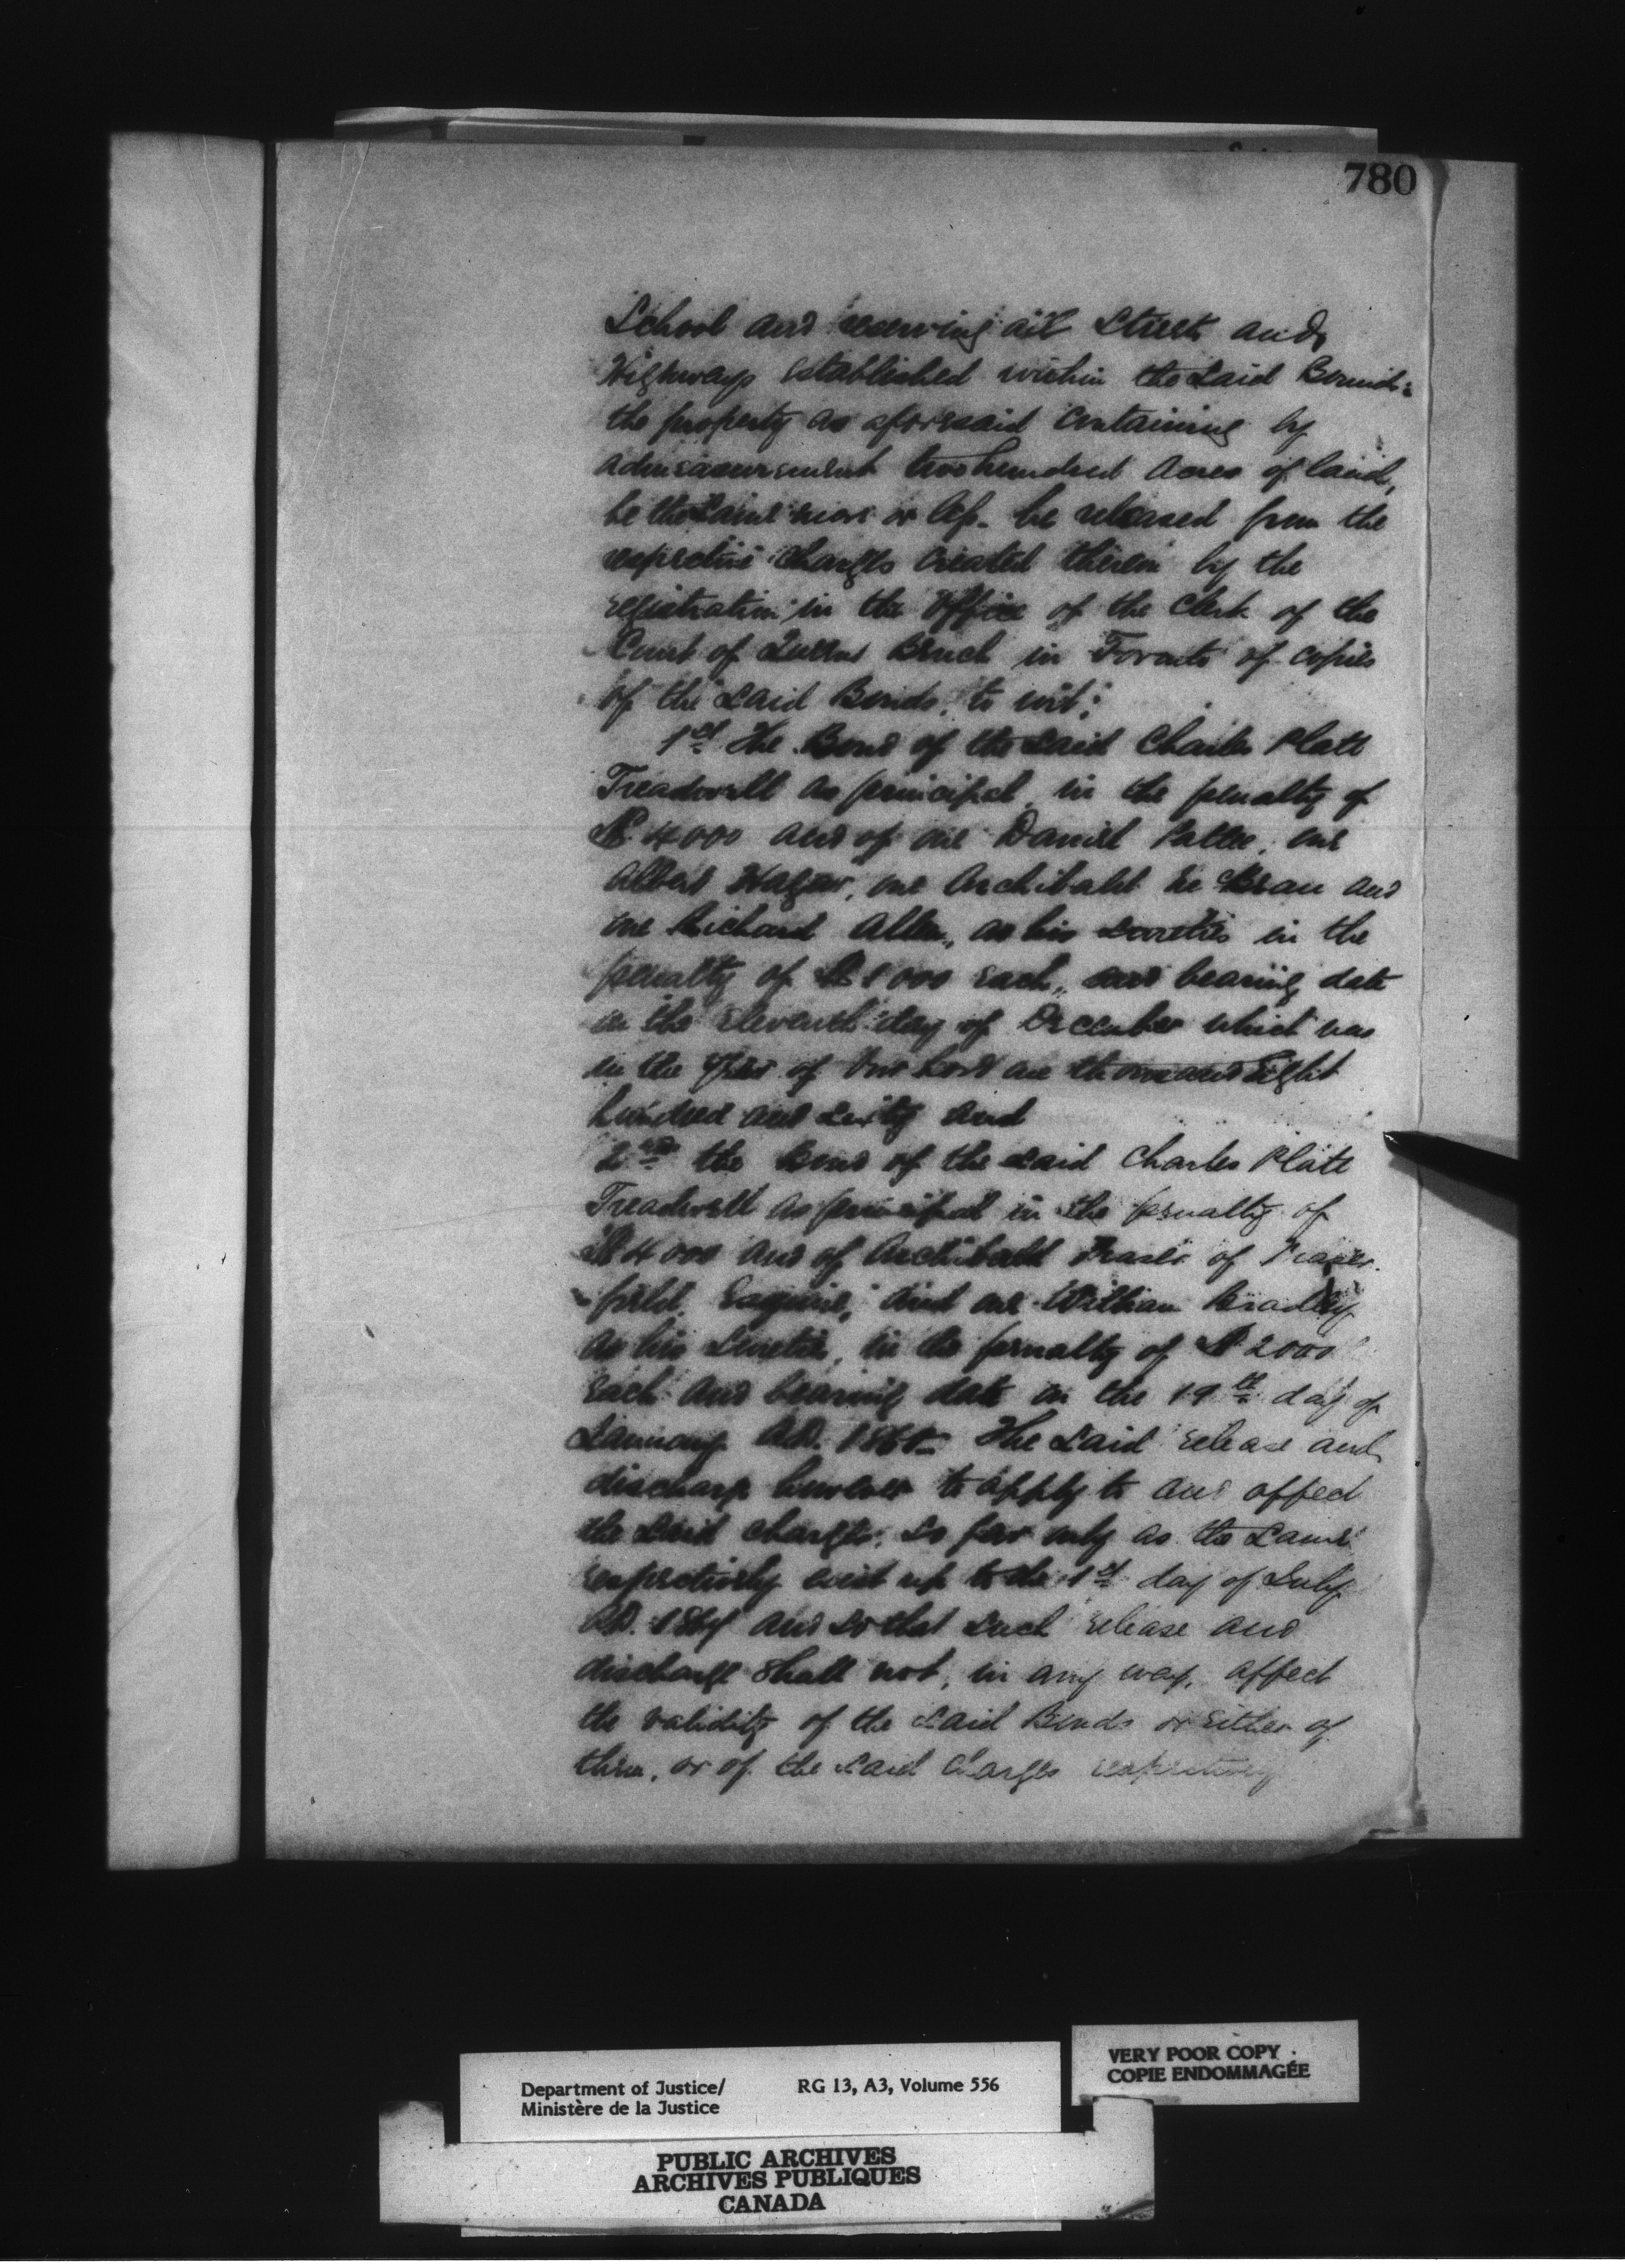 780
School and reserving all Streets and
Highways established within the said Bounds:
the property as aforesaid containing by
admeasurement two hundred Acres of land,
be the same more or less - be released from the
respective charges created therein by the
registration in the Office of the Clerk of the
Court of Queens Bench in Toronto of copies
of the said Bonds, to wit:
1st The Bond of the said Charles Platt
Treadwell as principal, in the penalty of
$4000 and of one Daniel Pattee, one
Albert Hagar, one Archibald and
one Richard Allen, as his sureties in the
penalty of $1000 each, and bearing date
on the eleventh day of December which was
in the year of Our Lord one thousand Eight
hundred and sixty and
2nd the Bond of the said Charles Platt
Treadwell as principal in the penalty of
$4000 and of Archibald Fraser of Fraser-
field, Esquire, and one William Bradley
as his Sureties, in the penalty of $2000
each and bearing date on the 19th day of
January A.D. The said release and
discharge however to apply to and affect
the said charges, so far only as the same
respectively exist up to the 1st day of July
A.D. and so that such release and
discharge shall not, in any way, affect
the validity of the said Bonds or either of
them, or of the said Charges respectively
Department of Justice/ RG 13, A3, Volume 556
Ministère de la Justice
VERY POOR COPY
COPIE ENDOMMAGÉE
PUBLIC ARCHIVES
ARCHIVES PUBLIQUES
CANADA